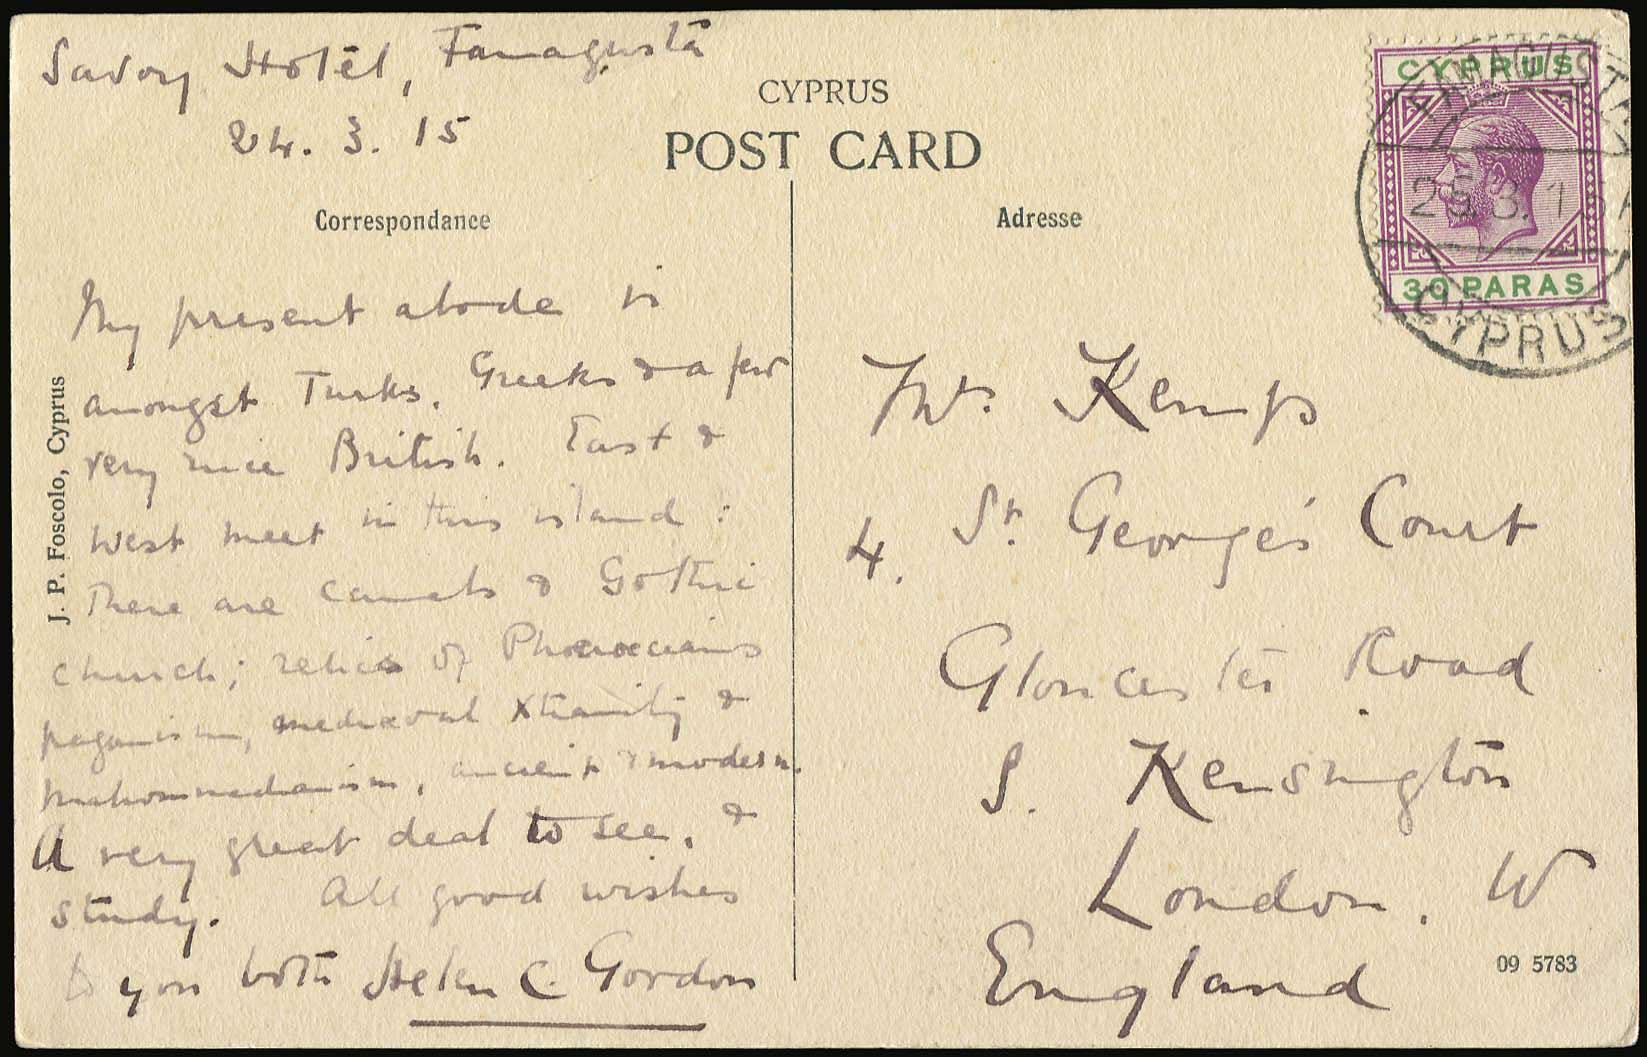 Savoy Hotel, Famagusta
24. 3. 15
CYPRUS
POST CARD
Correspondance
My present abode is
amongst Turks, Greeks & a few
very nice British. East &
West meet in this island :
There are camels & Gothic
church; relics of Phoenicians
paganism, mediaeval Xtianity &
Mahommedanism, ancient & modern.
A very great deal to see, &
study. All good wishes
to you both Helen C. Gordon
J. P. Foscolo, Cyprus
Adresse
CYPRUS
30 PARAS
FAMAGUSTA
25.3.15
CYPRUS
Mrs. Kemp
4. St. George's Court
Gloucester Road
S. Kensington
London. W
England
09 5783